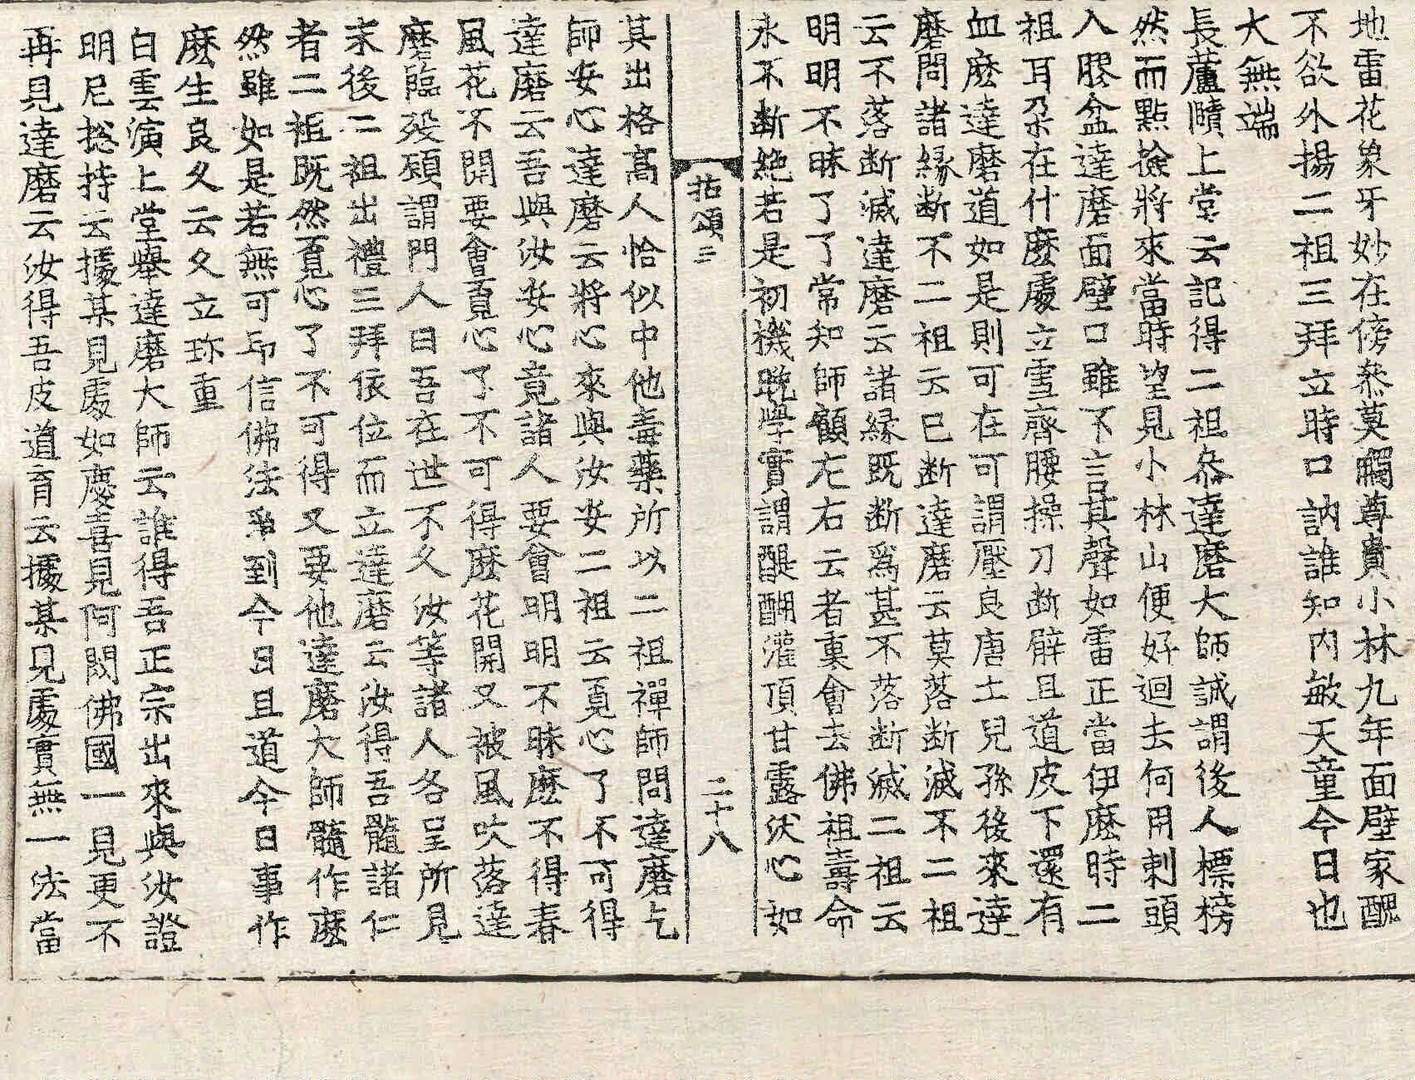 地雷花象牙妙在傍叅莫觸尊貴小林九年面壁家醜
不欲外揚二祖三拜立時口訥誰知內敏天童今日也
大無端
長蘆賾上堂云記得二祖叅達磨大師誠謂後人標榜
然而點撿將來當時望見小林山便好迴去何用刺頭
入膠盆達磨面壁口雖不言其聲如雷正當伊麽時二
祖耳朶在什麽處立雪齊腰操刀断臂且道皮下還有
血麽達磨道如是則可在可謂壓良唐土兒孫後來達
磨問諸緣断不二祖云已断達磨云莫落断滅不二祖
云不落断滅達磨云諸緣旣断爲甚不落断滅二祖云
明明不昧了了常知師顧左右云者裏會去佛祖壽命
永不断絶若是初機晩學實謂醍醐灌頂甘露沃心如
拈頌三　二十八
其出格高人恰似中他毒藥所以二祖禪師問達磨乞
師安心達磨云將心來與汝安二祖云覔心了不可得
達磨云吾與汝安心竟諸人要會明明不昧麽不得春
風花不開要會覔心了不可得麽花開又被風吹落達
磨臨歿顧謂門人曰吾在世不久汝等諸人各呈所見
末後二祖出禮三拜依位而立達磨云汝得吾髓諸仁
者二祖旣然覔心了不可得又要他達磨大師髓作麽
然雖如是若無可印信佛法爭到今日且道今日事作
麽生良久云久立珎重
白雲演上堂舉達磨大師云誰得吾正宗出來與汝證
明尼捴持云據某見處如慶喜見何閦佛國一見更不
再見達磨云汝得吾皮道育云據某見處實無一法當